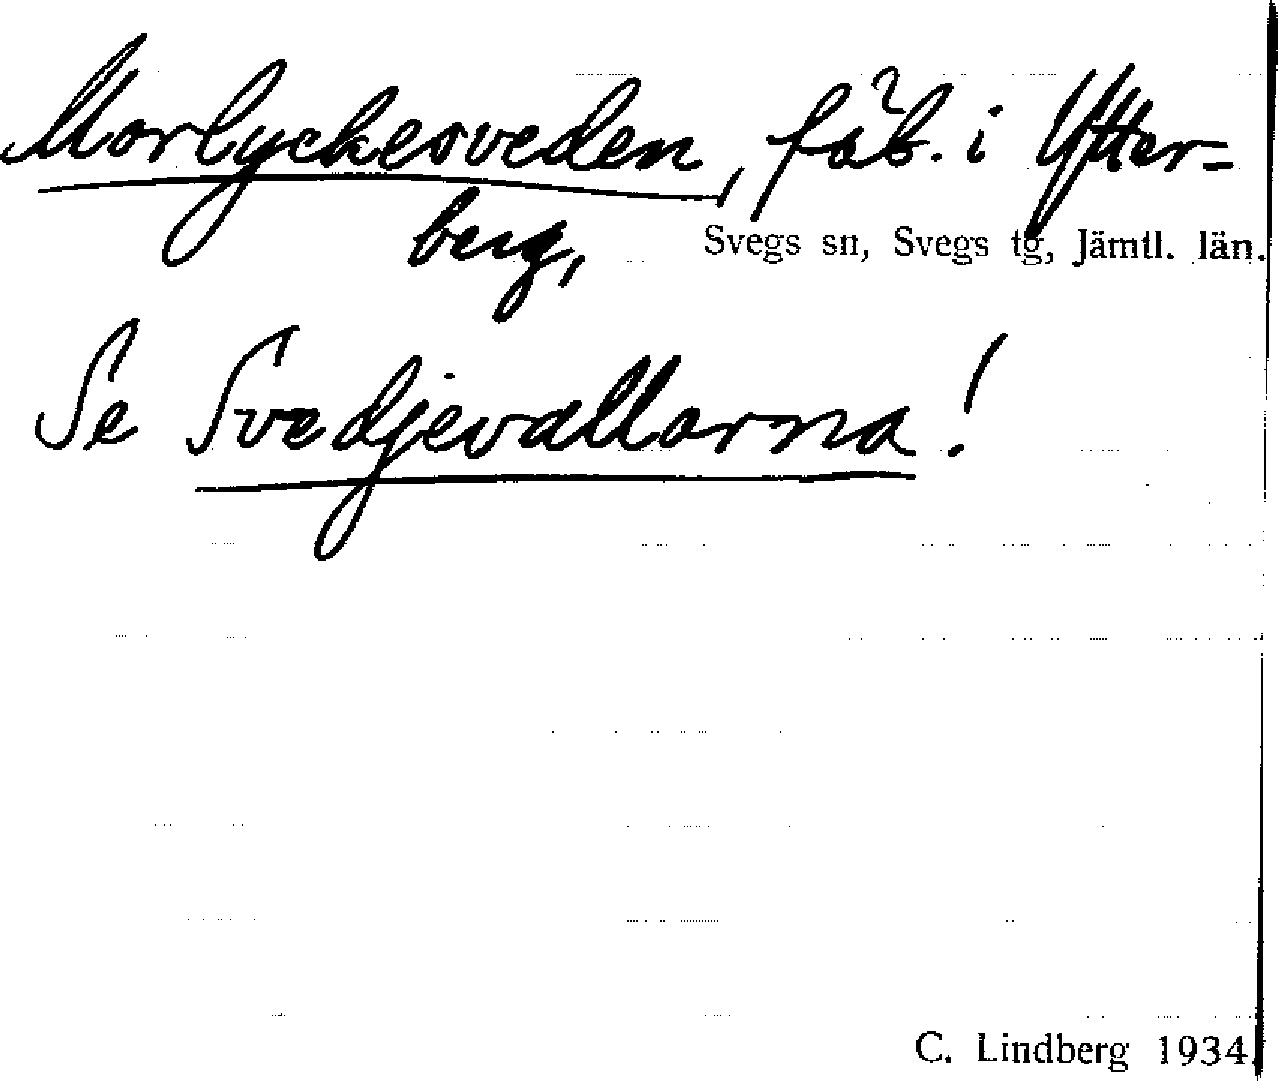 Morlyckesveden, fäb. i Ytter-
berg, Svegs sn, Svegs tg, Jämtl. län.
Se Svedjevallarna!
C. Lindberg 1934.